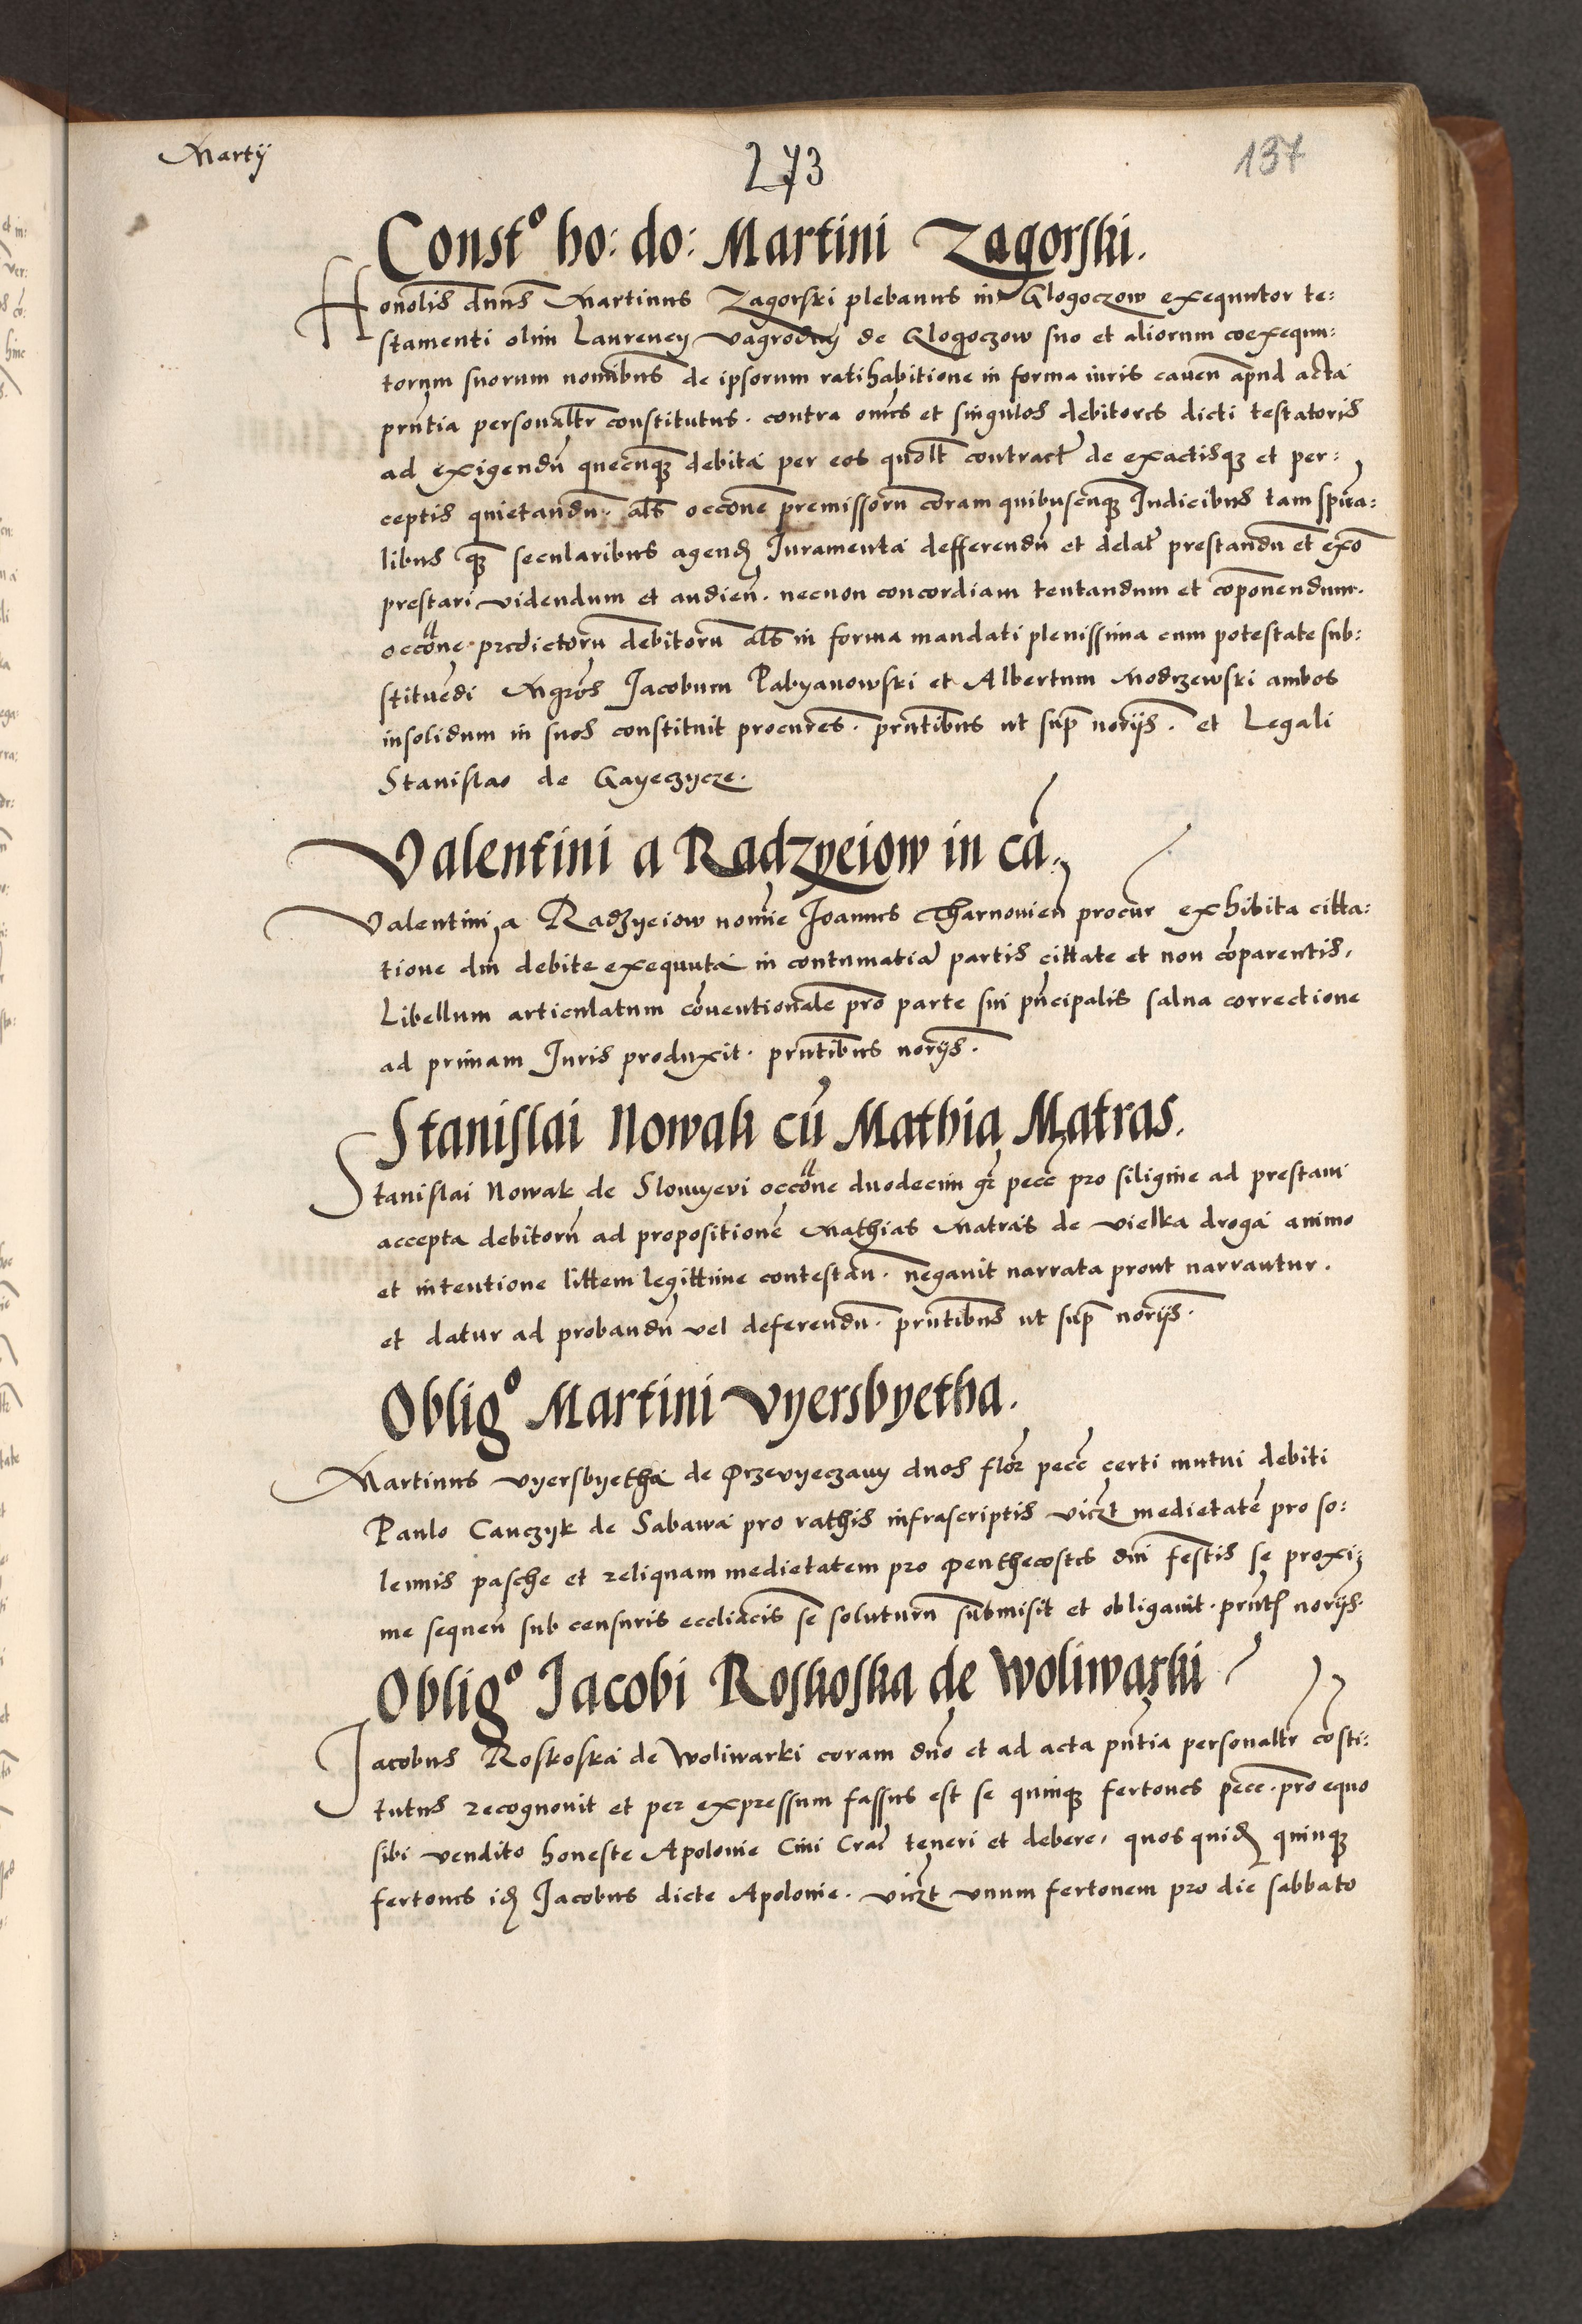 Martij
273
137
Constº ho: do: Martini Zagorski.
Honolis dnus Martinus Zagorski plebanus in Glogoczow exequutor te:
stamenti olim Laurency vagrodny de Glogoczow suo et aliorum coexequu:
torum suorum nominibus de ipsorum ratihabitione in forma iuris caven apud acta
pruntia personaltr constitutus. contra omes et singulos debitores dicti testatoris
ad exigendu quecunqz debita per eos quolt contract de exactisqz et per:
ceptis quietandu. als occone premissoru coram quibuscunqz Iudicibus tam spua:
libus qz secularibus agend Iuramenta defferendu et delat prestandu et exo
prestari videndum et audien. necnon concordiam tentandum et componendum.
occone predictoru debitoru als in forma mandati plenissima cum potestate sub:
stituedi Mgros Jacobum Pabyanowski et Albertum Modrzewski ambos
insolidum in suos constituit procures. pruntibus ut sup norijs. et Legali
Stanislao de Gayeczycze.
Valentini a Radzyeiow in ca.
Valentini a Radzyeiow nomie Joannes Tharnovien procur exhibita citta:
tione dni debite exequuta in contumatia partis cittate et non comparentis,
Libellum articulatum conventionale pro parte sui pncipalis salua correctione
ad primam Iuris produxit. pruntibus norijs.
Stanislai Nowak cu Mathia Matras.
Stanislai Nowak de Slomyevi occone duodecim gr pecc pro siligine ad prestam
accepta debitoru ad propositione Mathias Matras de vielka droga animo
et intentione littem legittime contestan. negauit narrata prout narrantur.
et datur ad probandu vel deferendu. pruntibus ut sup norijs.
Obligº Martini vyersbyetha.
Martinus vyersbyetha de Przevyeczany duos flor pecc certi mutui debiti
Paulo Canczyk de Sabawa pro rathis infrascriptis viczt medietate pro so:
lennis pasche et reliquam medietatem pro Penthecostes dni festis se proxi:
me sequen sub censuris eccliacis se soluturu submisit et obligauit. prunts norijs.
Obligº Jacobi Roskoska de Woliwarki
Jacobus Roskoska de Woliwarki coram dno et ad acta pntia personaltr costi:
tutus recognouit et per expressum fassus est se quinqz fertones pecc. pro equo
sibi vendito honeste Apolonie Ciui Crac teneri et debere, quos quid quinqz
fertones id Jacobus dicte Apolonie. viczt vnum fertonem pro die sabbato